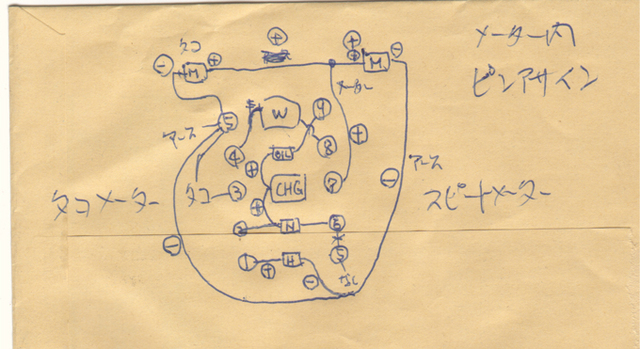 メーター内
ピンアサイン
⊕
⊕
タコ
⊕
⊖
M
⊕
M
⊖
メーター
⑤
W
⑨
アース
④
⑧
⊕
OIL
⊕
アース
⊖
タコ
③
CHG
⑦
タコメーター
スピードメーター
⊕
②
N
⑥
⊖
⑤
①
⊕
H
⊖
なし